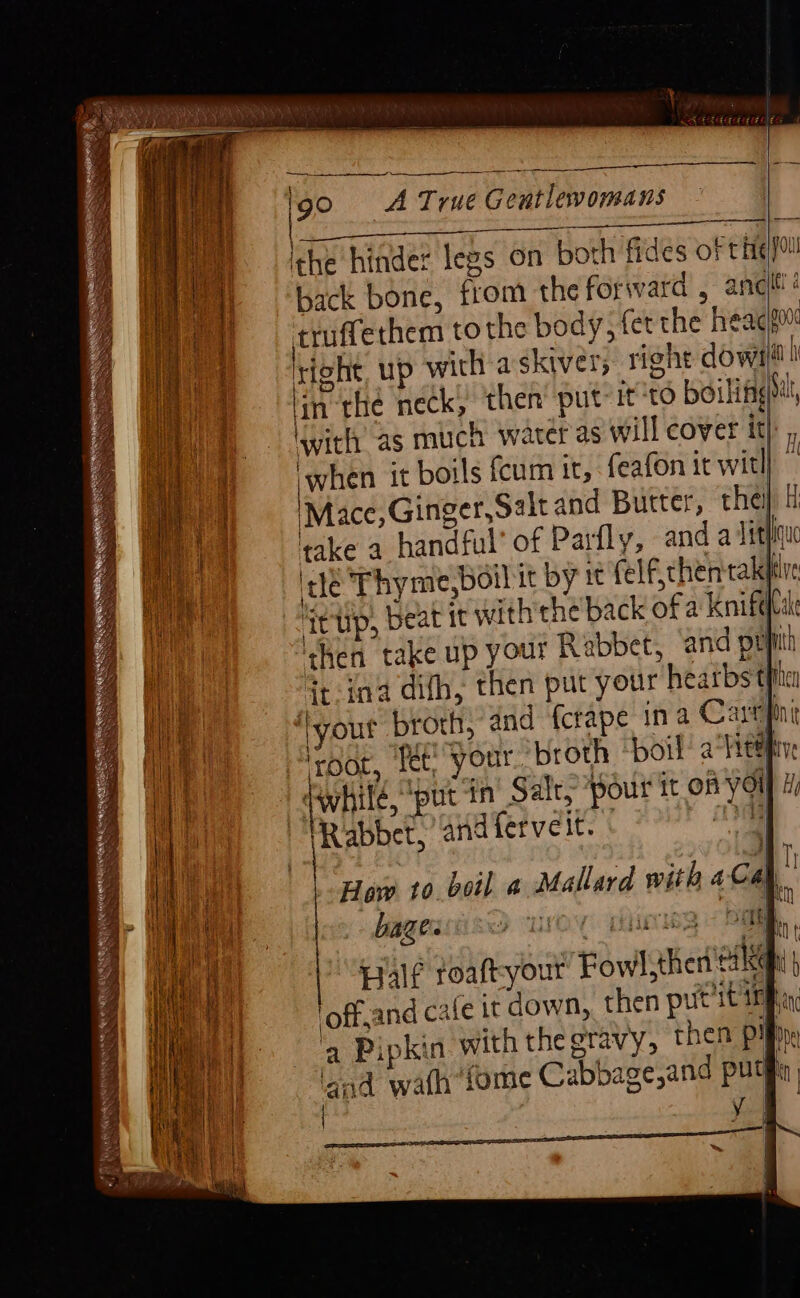 90 A True Gentlewomans
the hinder legs on both ſides of the
back bone, from the forward , and
truſſe them to the body, ſet the head
right up with a skiver, right down
in the neck, then put it to boiling
with as much water as will cover it
when it boils ſcum it, ſeaſon it with
Mace, Ginger, Salt and Butter, then
take a handful of Parſly, and a lit-
tle Thyme, boil it by it ſelf, then take
it up, beat it with the back of a Knife
then take up your Rabbet, and put
it in a diſh, then put your hearbs to
your broth, and ſcrape in a Carret
root, let your broth boil a little
while, put in Salt, pour it on your
Rabbet, and ſerve it.
How to boil a Mallard with a Cab
bage.
Half roaſt your Fowl, then take
off, and caſe it down, then put it in
a Pipkin with the gravy, then p
and waſh ſome Cabbage, and put
y